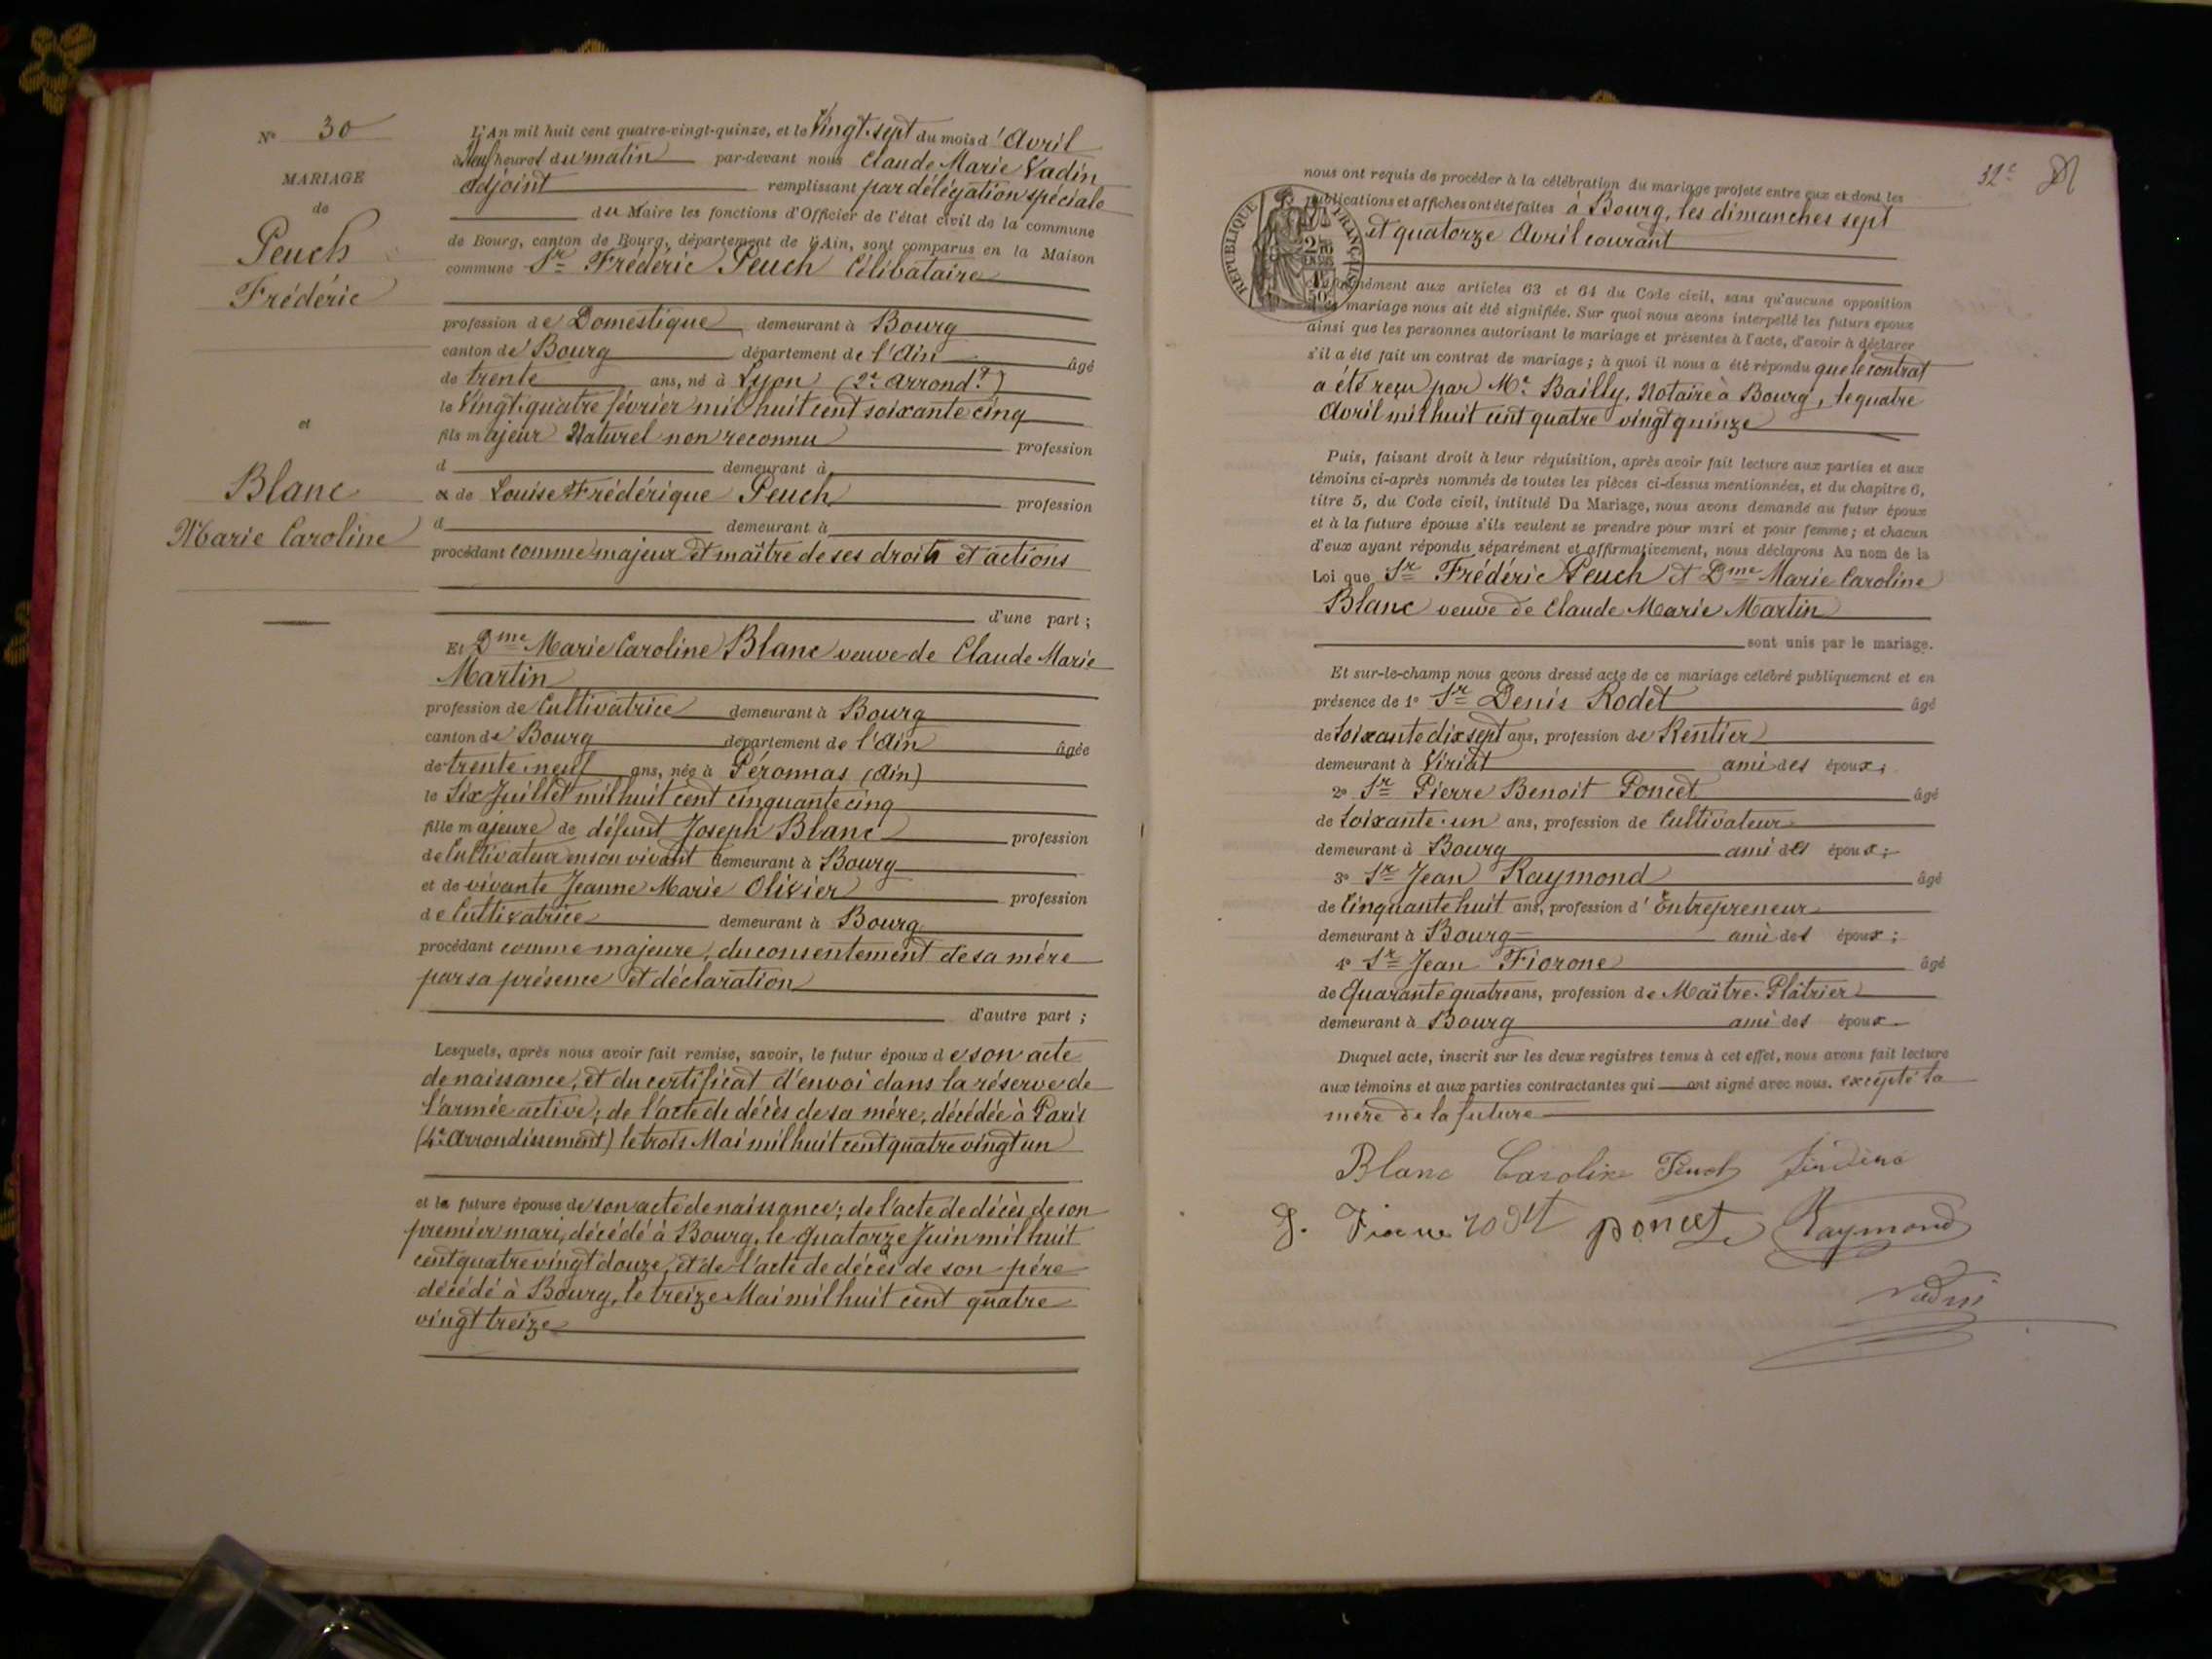 N° 30
MARIAGE
de
Peuch
Frédéric
et
Blanc
Marie Caroline
L'An mil huit cent quatre-vingt-quinze, et le Vingt-sept du mois d'Avril
à Neuf heures du matin par-devant nous Claude Marie Vadin
adjoint remplissant par délégation spéciale
du Maire les fonctions d'Officier de l'état civil de la commune
de Bourg, canton de Bourg, département de l'Ain, sont comparus en la Maison
commune Sr Frédéric Peuch Célibataire
profession de Domestique demeurant à Bourg
canton de Bourg département de l'Ain âgé
de trente ans, né à Lyon (2e arrondt)
le Vingt-quatre février mil huit cent soixante cinq
fils majeur Naturel non reconnu profession
d demeurant à
& de Louise Frédérique Peuch profession
d demeurant à
procédant comme majeur et maître de ses droits et actions
d'une part ;
Et Dme Marie Caroline Blanc veuve de Claude Marie
Martin
profession de Cultivatrice demeurant à Bourg
canton de Bourg département de l'Ain âgée
de trente-neuf ans, née à Péronnas (Ain)
le Six Juillet mil huit cent cinquante cinq
fille majeure de défunt Joseph Blanc profession
de Cultivateur en son vivant demeurant à Bourg
et de vivante Jeanne Marie Olivier profession
de Cultivatrice demeurant à Bourg
procédant comme majeure, du consentement de sa mère
par sa présence et déclaration
d'autre part ;
Lesquels, après nous avoir fait remise, savoir, le futur époux de son acte
de naissance, et du certificat d'envoi dans la réserve de
l'armée active ; de l'acte de décès de sa mère, décédée à Paris
(4e Arrondissement) le trois Mai mil huit cent quatre vingt un
et la future épouse de son acte de naissance ; de l'acte de décès de son
premier mari, décédé à Bourg, le quatorze Juin mil huit
cent quatre vingt douze, et de l'acte de décès de son père
décédé à Bourg, le treize Mai mil huit cent quatre
vingt treize
32e
nous ont requis de procéder à la célébration du mariage projeté entre eux et dont les
publications et affiches ont été faites à Bourg, les dimanches sept
et quatorze Avril courant
RÉPUBLIQUE FRANÇAISE
conformément aux articles 63 et 64 du Code civil, sans qu'aucune opposition
mariage nous ait été signifiée. Sur quoi nous avons interpellé les futurs époux
ainsi que les personnes autorisant le mariage et présentes à l'acte, d'avoir à déclarer
s'il a été fait un contrat de mariage ; à quoi il nous a été répondu que le contrat
a été reçu par Me Bailly, Notaire à Bourg, le quatre
Avril mil huit cent quatre vingt quinze
Puis, faisant droit à leur réquisition, après avoir fait lecture aux parties et aux
témoins ci-après nommés de toutes les pièces ci-dessus mentionnées, et du chapitre 6,
titre 5, du Code civil, intitulé Du Mariage, nous avons demandé au futur époux
et à la future épouse s'ils veulent se prendre pour mari et pour femme ; et chacun
d'eux ayant répondu séparément et affirmativement, nous déclarons Au nom de la
Loi que Sr Frédéric Peuch et Dme Marie Caroline
Blanc veuve de Claude Marie Martin
sont unis par le mariage.
Et sur-le-champ nous avons dressé acte de ce mariage célébré publiquement et en
présence de 1° Sr Denis Rodet âgé
de soixante dix sept ans, profession de Rentier
demeurant à Viriat ami des époux ;
2° Sr Pierre Benoit Poncet âgé
de soixante-un ans, profession de Cultivateur
demeurant à Bourg ami des époux ;
3° Sr Jean Raymond âgé
de Cinquante huit ans, profession d'Entrepreneur
demeurant à Bourg ami des époux ;
4° Sr Jean Fiorone âgé
de Quarante quatre ans, profession de Maître-Plâtrier
demeurant à Bourg ami des époux
Duquel acte, inscrit sur les deux registres tenus à cet effet, nous avons fait lecture
aux témoins et aux parties contractantes qui ont signé avec nous, excepté la
mère de la future
Blanc Caroline Peuch
J. Fiorone rodet poncet Raymond
Vadin